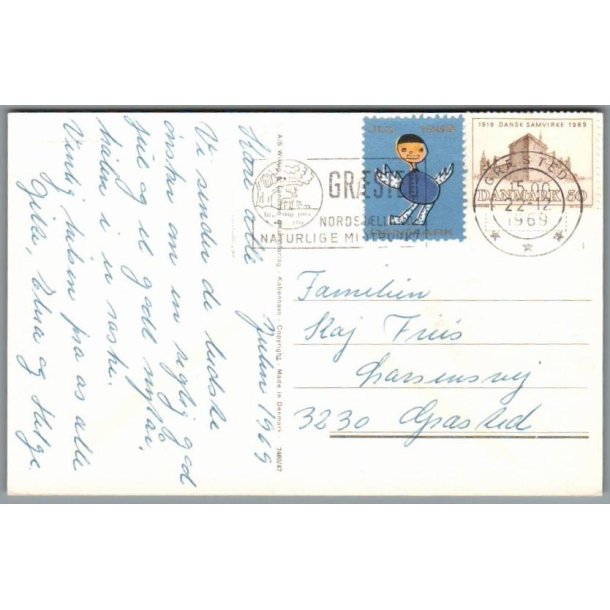 Julen 1969
Kære alle
Vi sender de bedste
ønsker om en rigtig god
jul og et godt nytår.
hilsen fra os alle
Gilda, og Helge.
A/S
København · Copyright · Made in Denmark
7460/47
GRÆSTED
NORDSJÆLLANDS
NATURLIGE MIDTPUNKT
JUL 1969
DANMARK
1919 DANSK SAMVIRKE 1969
DANMARK 50
GRÆSTED
15.00
22-12
1969
Familien
Kaj Friis
Larsensvej
3230 Græsted